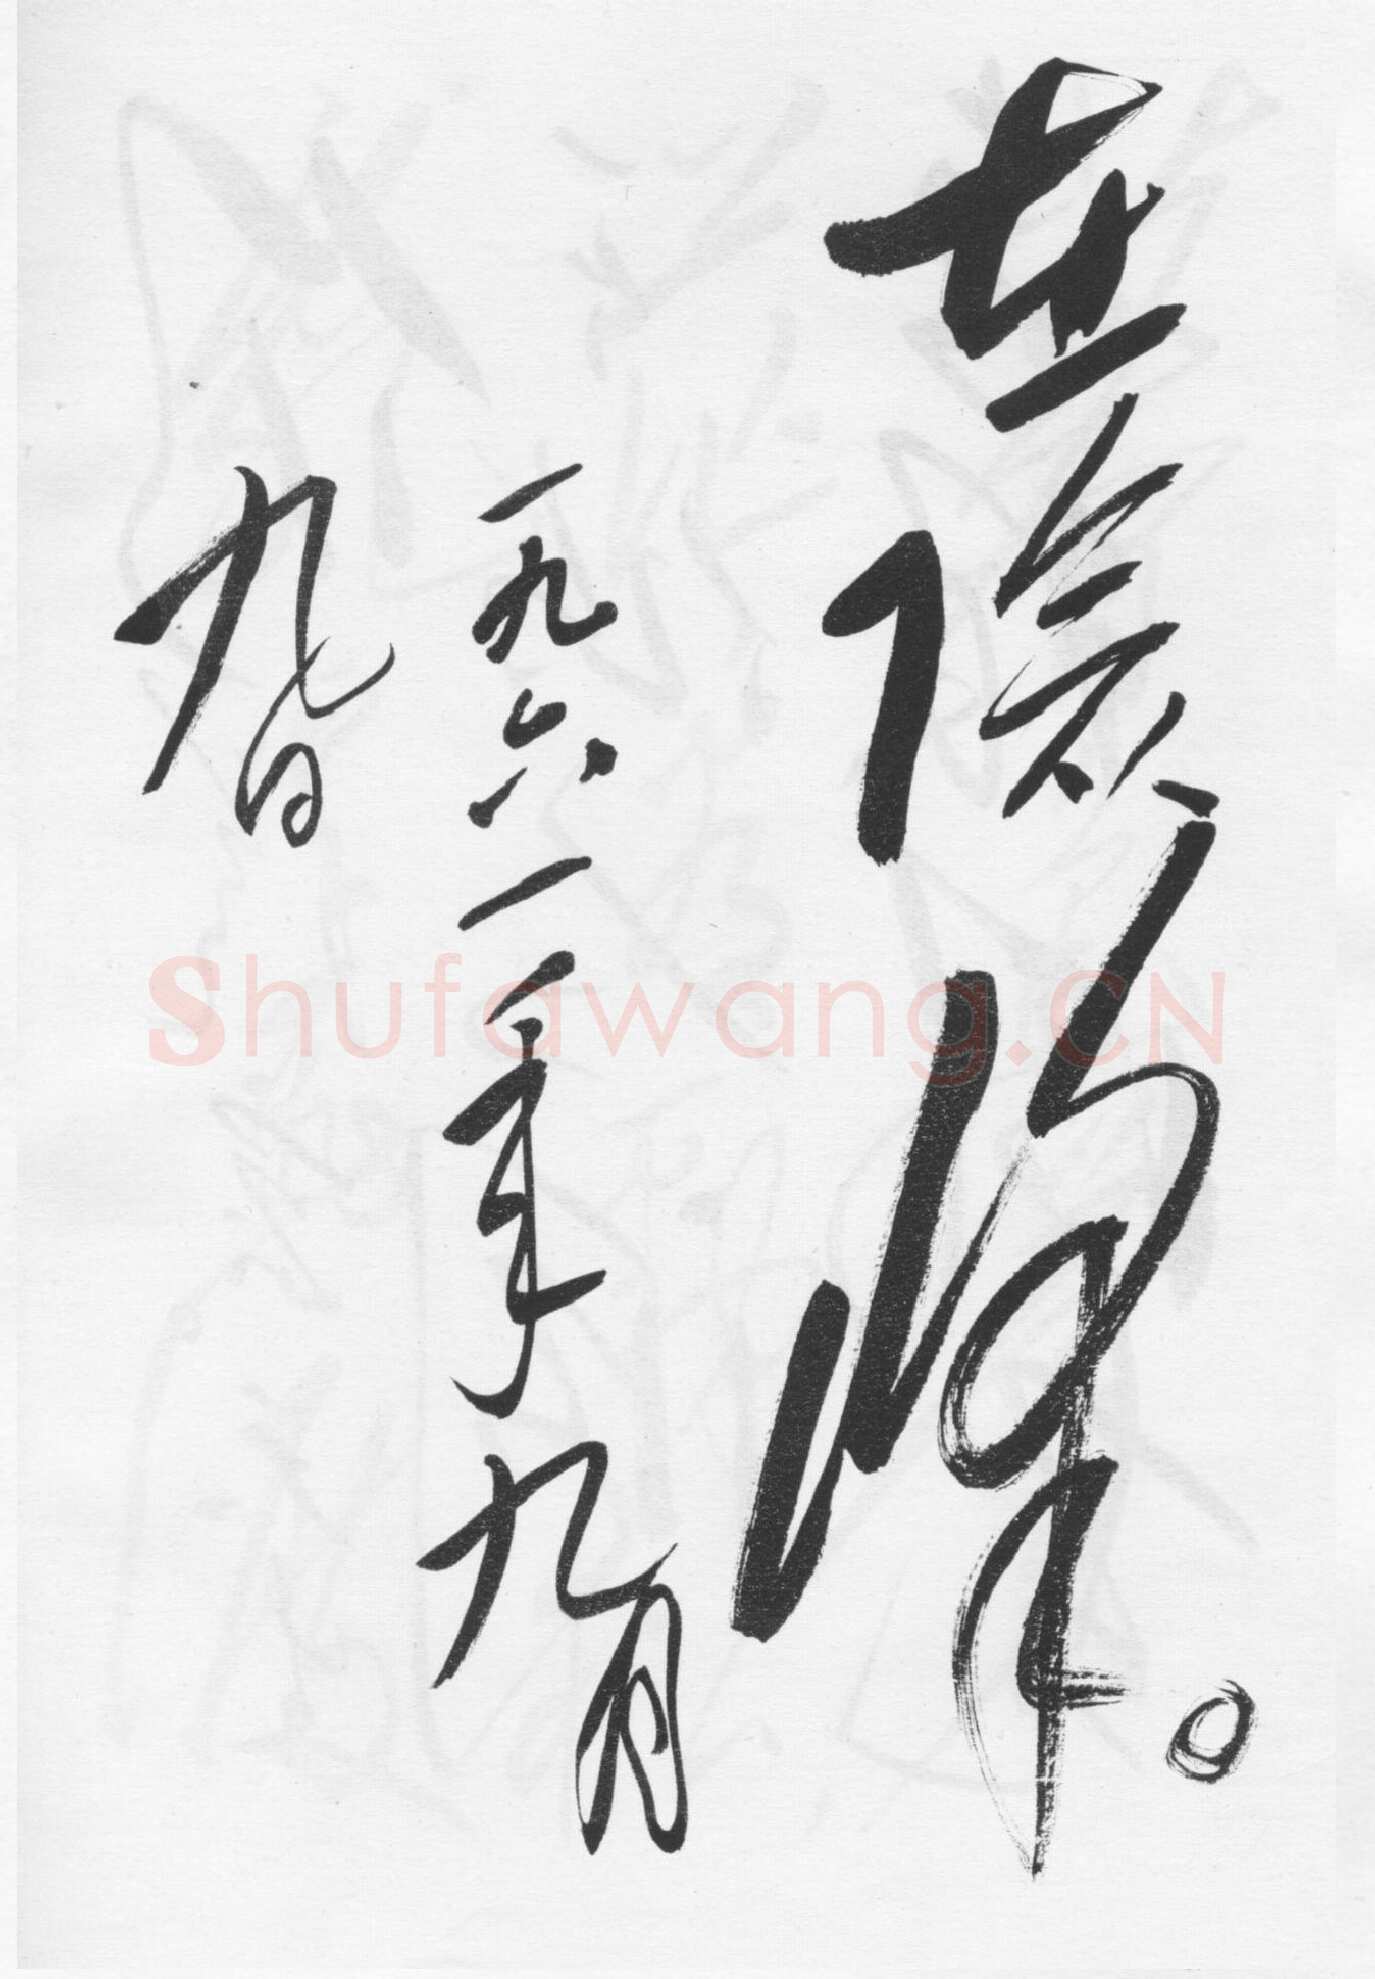 在险峰。
一九六一年九月
九日
Shufawang.CN